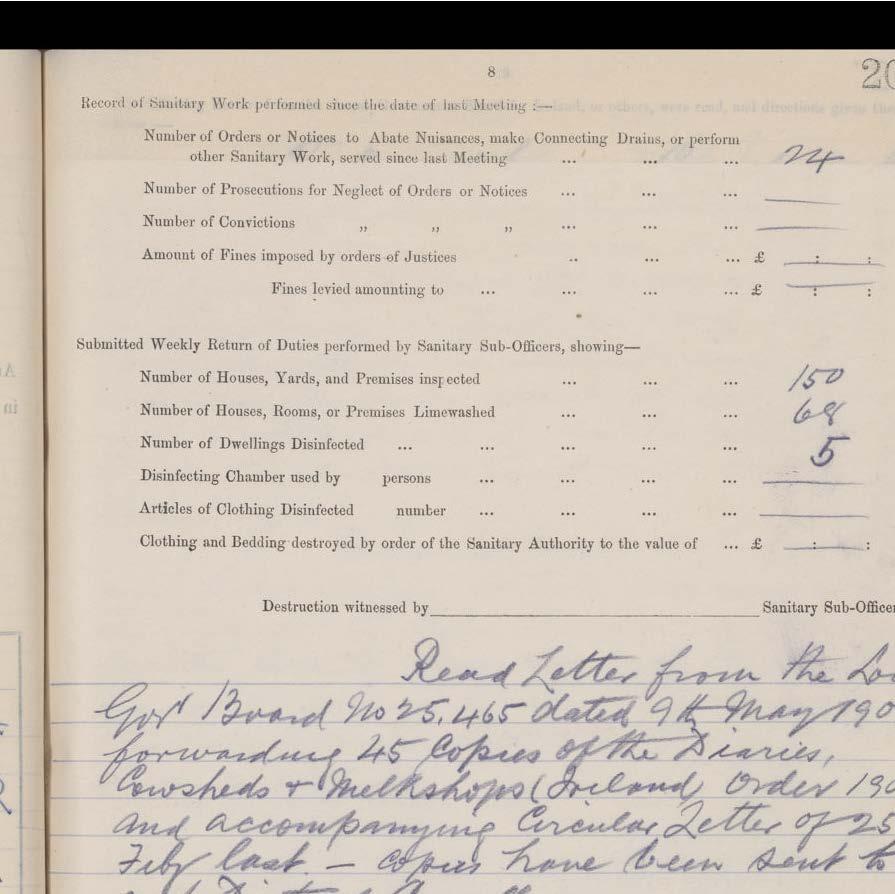 8
20
Record of Sanitary Work performed since the date of last Meeting :—
Number of Orders or Notices to Abate Nuisances, make Connecting Drains, or perform
other Sanitary Work, served since last Meeting ... ... ... 24
Number of Prosecutions for Neglect of Orders or Notices ... ... ...
Number of Convictions „ „ „ ... ... ...
Amount of Fines imposed by orders of Justices .. ... ... £ : :
Fines levied amounting to ... ... ... ... £ : :
Submitted Weekly Return of Duties performed by Sanitary Sub-Officers, showing—
Number of Houses, Yards, and Premises inspected ... ... ... 150
Number of Houses, Rooms, or Premises Limewashed ... ... ... 68
Number of Dwellings Disinfected ... ... ... ... ... 5
Disinfecting Chamber used by persons ... ... ... ...
Articles of Clothing Disinfected number ... ... ... ...
Clothing and Bedding destroyed by order of the Sanitary Authority to the value of ... £ : :
Destruction witnessed by Sanitary Sub-Officer
Read Letter from the Lo
Govt Board No 25,465 dated 9th May 190
forwarding 45 Copies of the Diaries,
Cowsheds + Milkshops (Ireland) Order 190
and accompanying Circular Letter of 25
Feby last – copies have been sent to